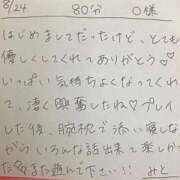 8/24 80分 O様
はじめましてだったけど、とても
優しくしてくれてありがとう♡
いっぱい気持ちよくなってくれ
て、凄く興奮したね♡プレイ
した後、腕枕で添い寝しな
がらいろんな話出来て楽しかっ
た また遊んで下さい!! みと